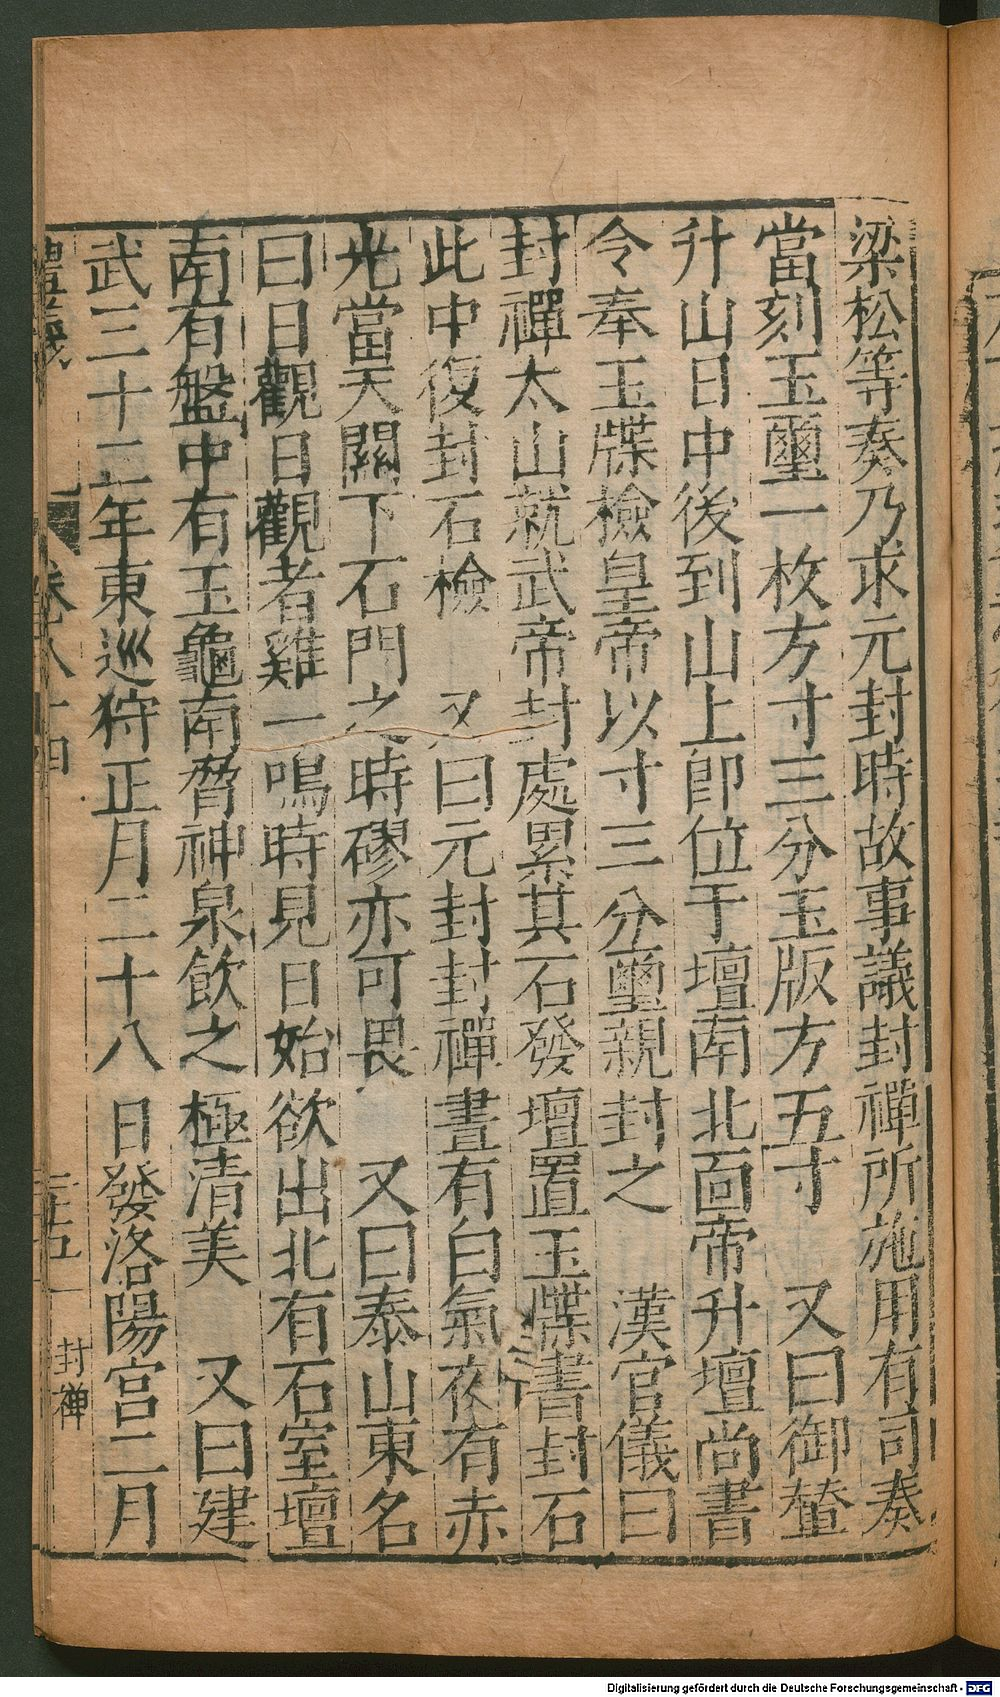 梁松等奏乃求元封時故事議封禪所施用有司奏
當刻玉璽一枚方寸三分玉版方五寸　又曰御輦
升山日中後到山上即位于壇南北面帝升壇尚書
令奉玉牒檢皇帝以寸三分璽親封之　漢官儀曰
封禪太山就武帝封處累其石發壇置玉牒書封石
此中復封石檢　又曰元封封禪晝有白氣夜有赤
光當天關下石門之時磟亦可畏　又曰泰山東名
曰日觀日觀者雞一鳴時見日始欲出北有石室壇
南有盤中有玉龜南脅神泉飲之極清美　又曰建
武三十二年東巡狩正月二十八日發洛陽宮二月
禮義　卷八十四　三五　封禪
Digitalisierung gefördert durch die Deutsche Forschungsgemeinschaft - DFG